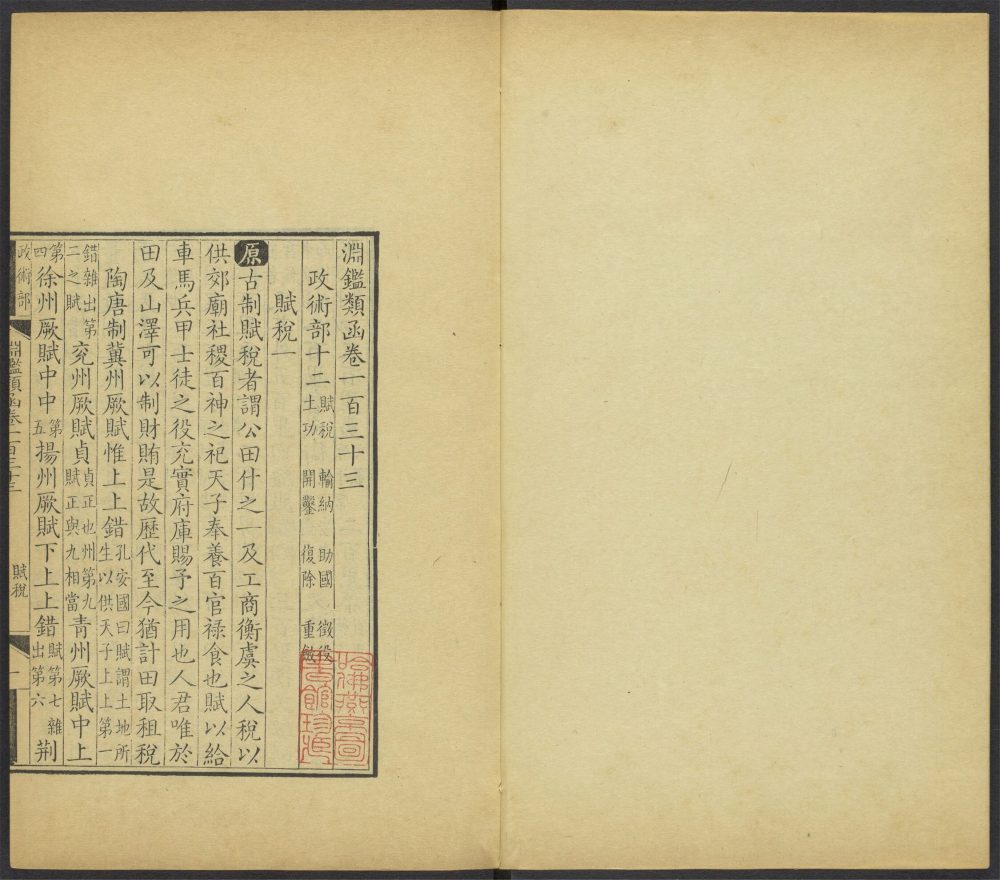 淵鑑類函卷一百三十三
政術部十二 賦稅 輸納 助國 徵役
土功 開鑿 復除 重斂
賦稅一
原古制賦稅者謂公田什之一及工商衡虞之人稅以
供郊廟社稷百神之祀天子奉養百官祿食也賦以給
車馬兵甲士徒之役充實府庫賜予之用也人君唯於
田及山澤可以制財賄是故歷代至今猶計田取租稅
陶唐制冀州厥賦惟上上錯孔安國曰賦謂土地所
生以供天子上上第一
錯雜出第
二之賦兗州厥賦貞貞正也州第九
賦正與九相當青州厥賦中上
第
四徐州厥賦中中第
五揚州厥賦下上上錯賦第七雜
出第六荆
政術部
淵鑑類函卷一百三十三
賦稅
一
哈佛燕京圖書館珍藏